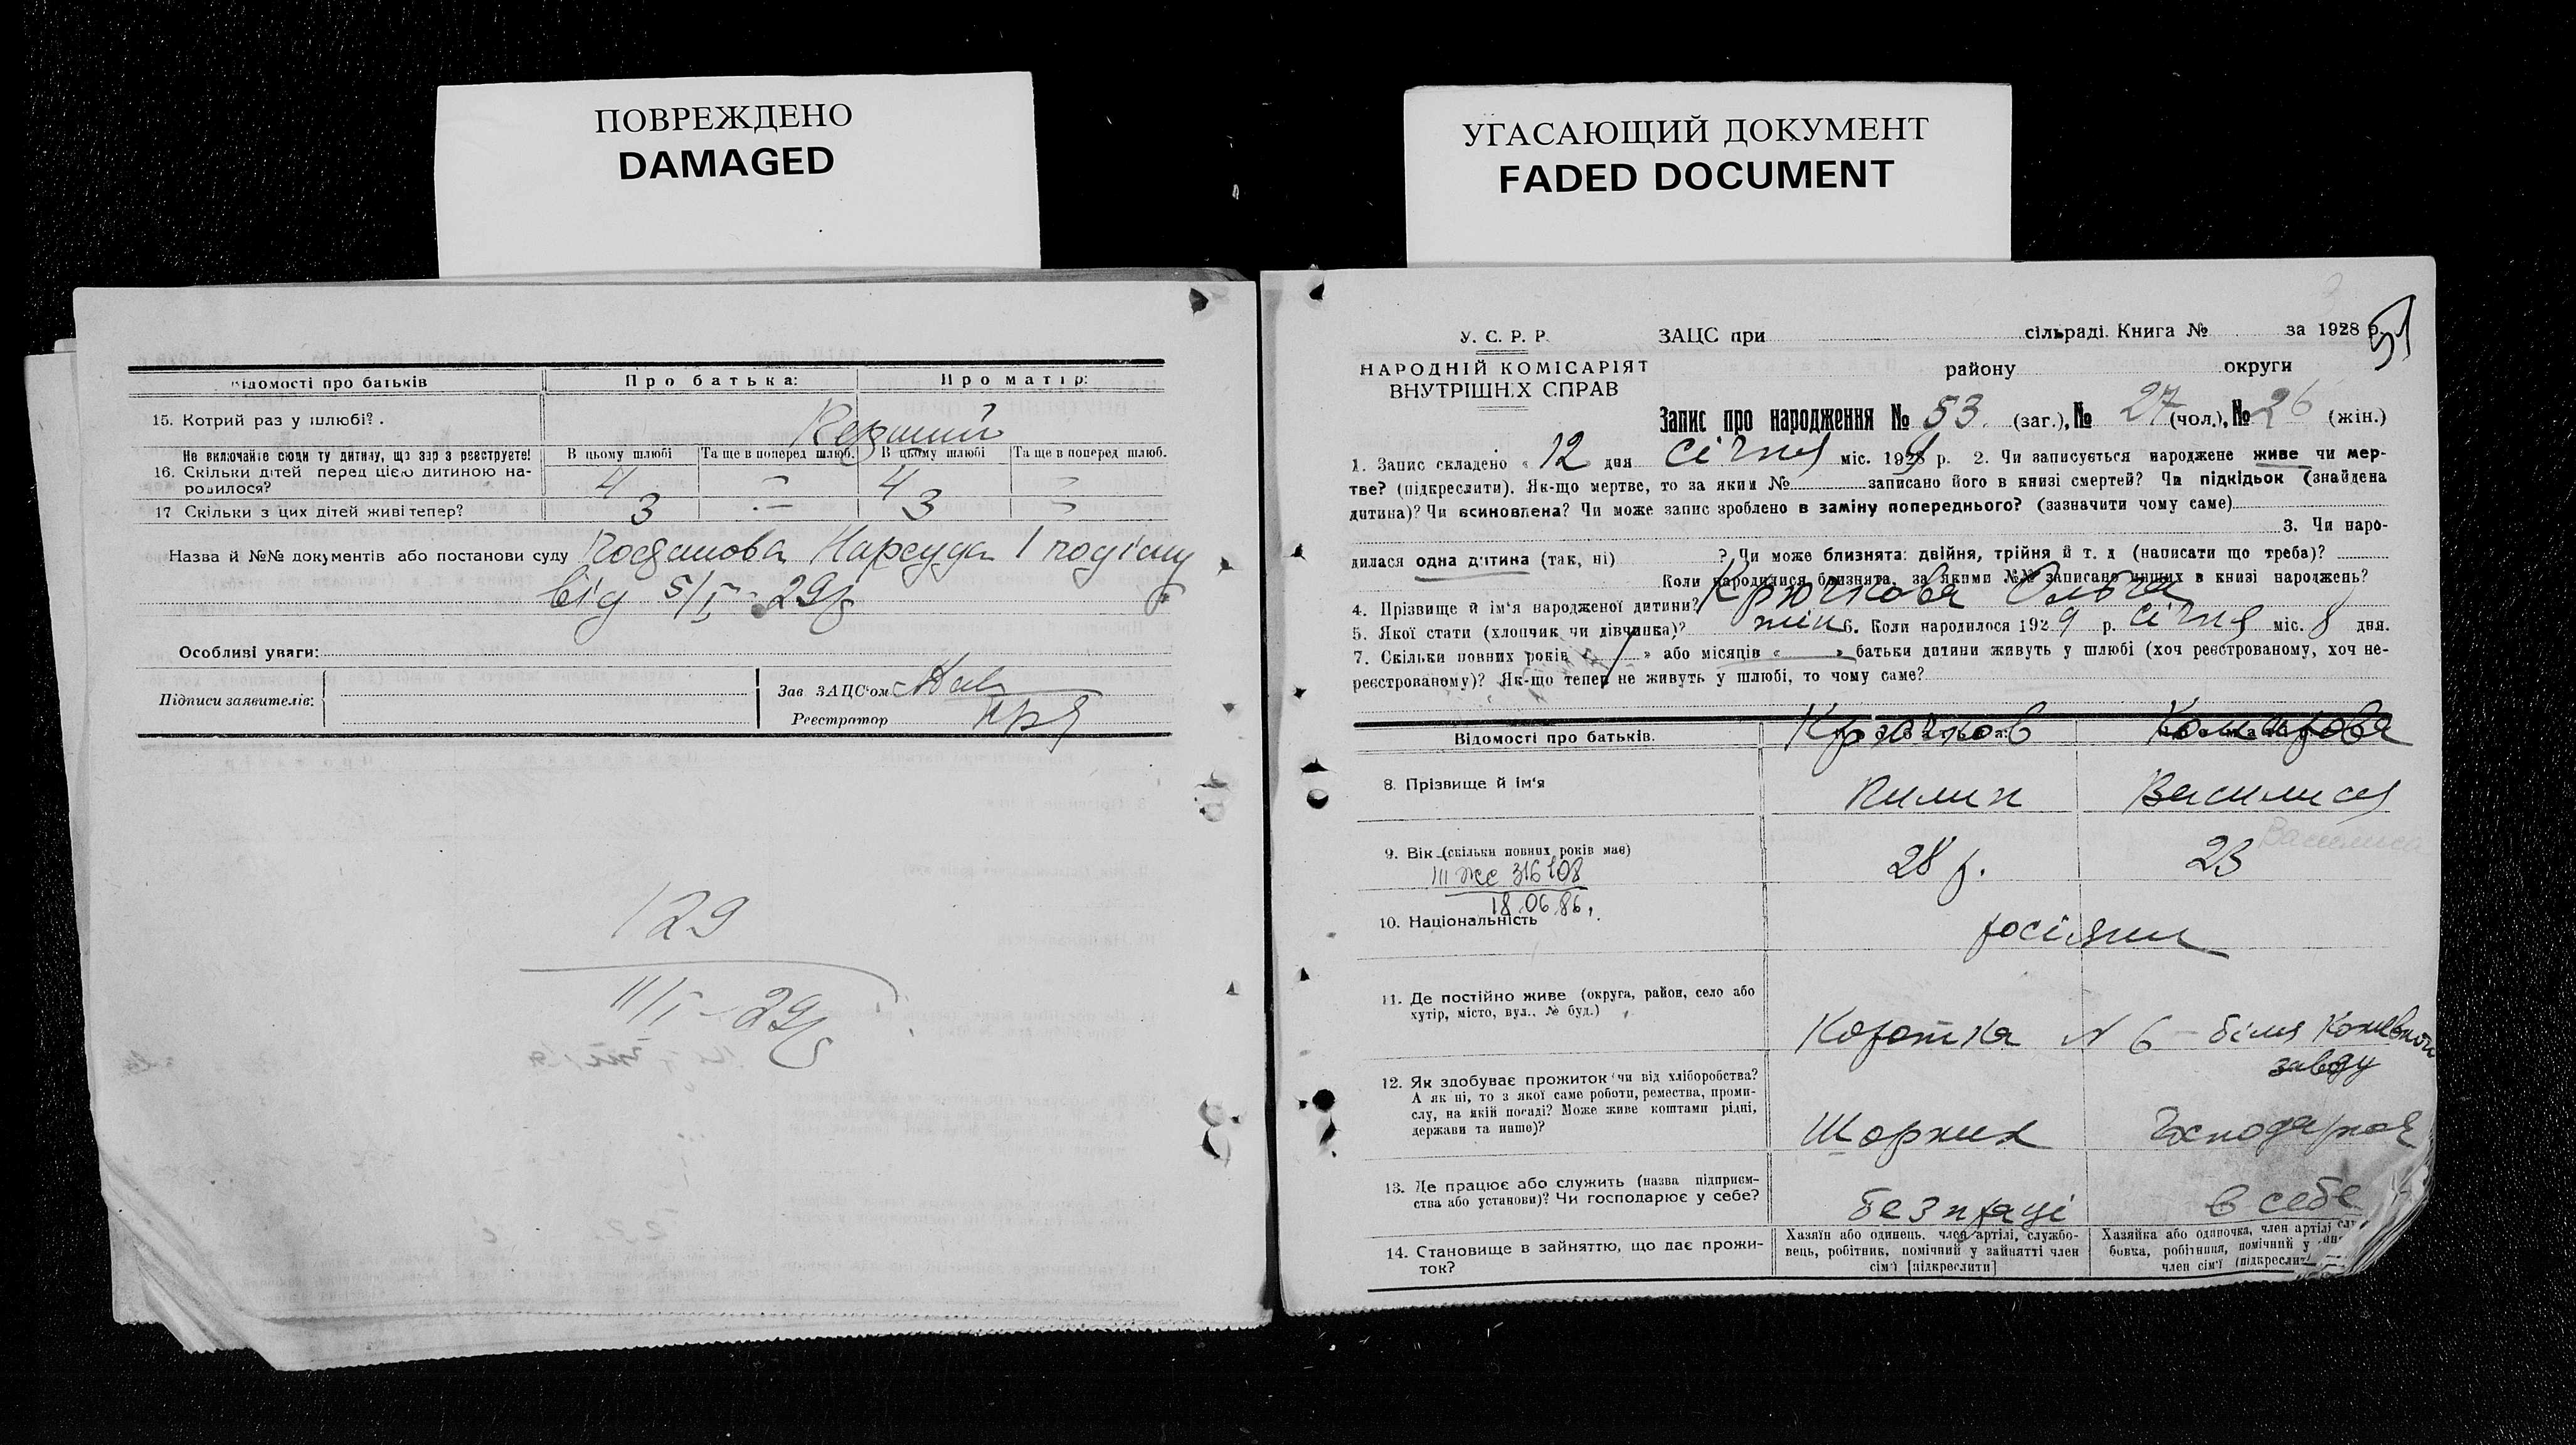 ПОВРЕЖДЕНО
DAMAGED
УГАСАЮЩИЙ ДОКУМЕНТ
FADED DOCUMENT
Відомості про батьків Про батька: Про матір:
15. Котрий раз у шлюбі?
Перший
Не включайте сюди ту дитину, що зараз реєструєте!
В цьому шлюбі Та ще в поперед шлюб. В цьому шлюбі Та ще в поперед шлюб.
16. Скільки дітей перед цією дитиною на-
родилося? 4 — 4 —
17 Скільки з цих дітей живі тепер? 3 — 3 —
Назва й №№ документів або постанови суду Постанова Нарсуда 1
від 5/I-29р
Особливі уваги:
Підписи заявителів:
Зав ЗАЦС'ом
Реєстратор
129
11/I-29р
У. С. Р. Р.
НАРОДНІЙ КОМІСАРІЯТ
ВНУТРІШНІХ СПРАВ
ЗАЦС при сільраді. Книга № за 1928 р.
51
району округи
Запис про народження № 53 (заг.), № 27 (чол.), № 26 (жін.)
1. Запис складено « 12 дня січня міс. 1929 р. 2. Чи записується народжене живе чи мер-
тве? (підкреслити). Як-що мертве, то за яким № записано його в книзі смертей? Чи підкідьок (знайдена
дитина)? Чи всиновлена? Чи може запис зроблено в заміну попереднього? (зазначити чому саме)
3. Чи наро-
дилася одна дитина (так, ні) ? Чи може близнята: двійня, трійня й т. д (написати що треба)?
Коли народилися близнята, за якими №№ записано инших в книзі народжень?
4. Прізвище й ім'я народженої дитини? Крючкова Ольга
5. Якої стати (хлопчик чи дівчинка)? жін 6. Коли народилося 1929 р. січня міс. 8 дня.
7. Скільки повних років « 7 » або місяців « — » батьки дитини живуть у шлюбі (хоч реєстрованому, хоч не-
реєстрованому)? Як-що тепер не живуть у шлюбі, то чому саме?
Відомості про батьків. Крючков Комарова
8. Прізвище й ім'я Пилип Василиса
Василиса
9. Вік (скільки повних років має) 28 р. 23
III ЖС 316108
18.06.86.
10. Національність росіяни
11. Де постійно живе (округа, район, село або
хутір, місто, вул., № буд.)
Коротка N 6 - біля Кожевного
заводу
12. Як здобуває прожиток (чи від хліборобства?
А як ні, то з якої саме роботи, ремества, проми-
слу, на якій посаді? Може живе коштами рідні,
держави та инше)?
Шорник Господарка
13. Де працює або служить (назва підприєм-
ства або установи)? Чи господарює у себе?
без праці в себе
14. Становище в зайняттю, що дає прожи-
ток?
Хазяїн або одинець, член артілі, службо-
вець, робітник, помічний у зайнятті член
сім'ї [підкреслити]
Хазяйка або одиночка, член артілі
бовка, робітниця, помічний у
член сім'ї